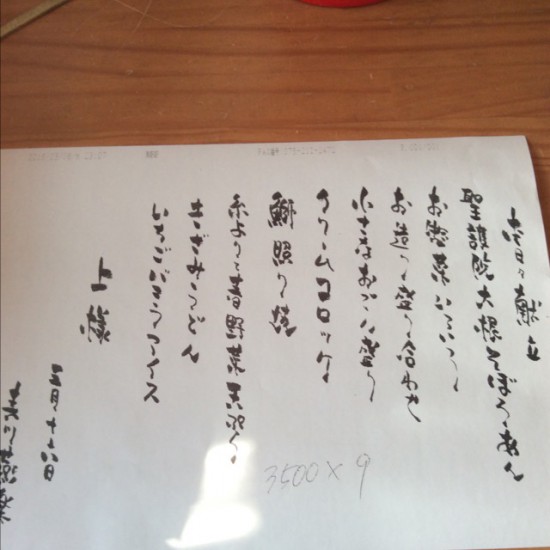 聖護院大根そぼろあん
お惣菜いろいろ
お造り盛り合わせ
小さなおでん盛り
クリームコロッケ
鰤照り焼
糸より と春野菜天ぷら
きざみうどん
いちごバニラアイス
上様
3500×9